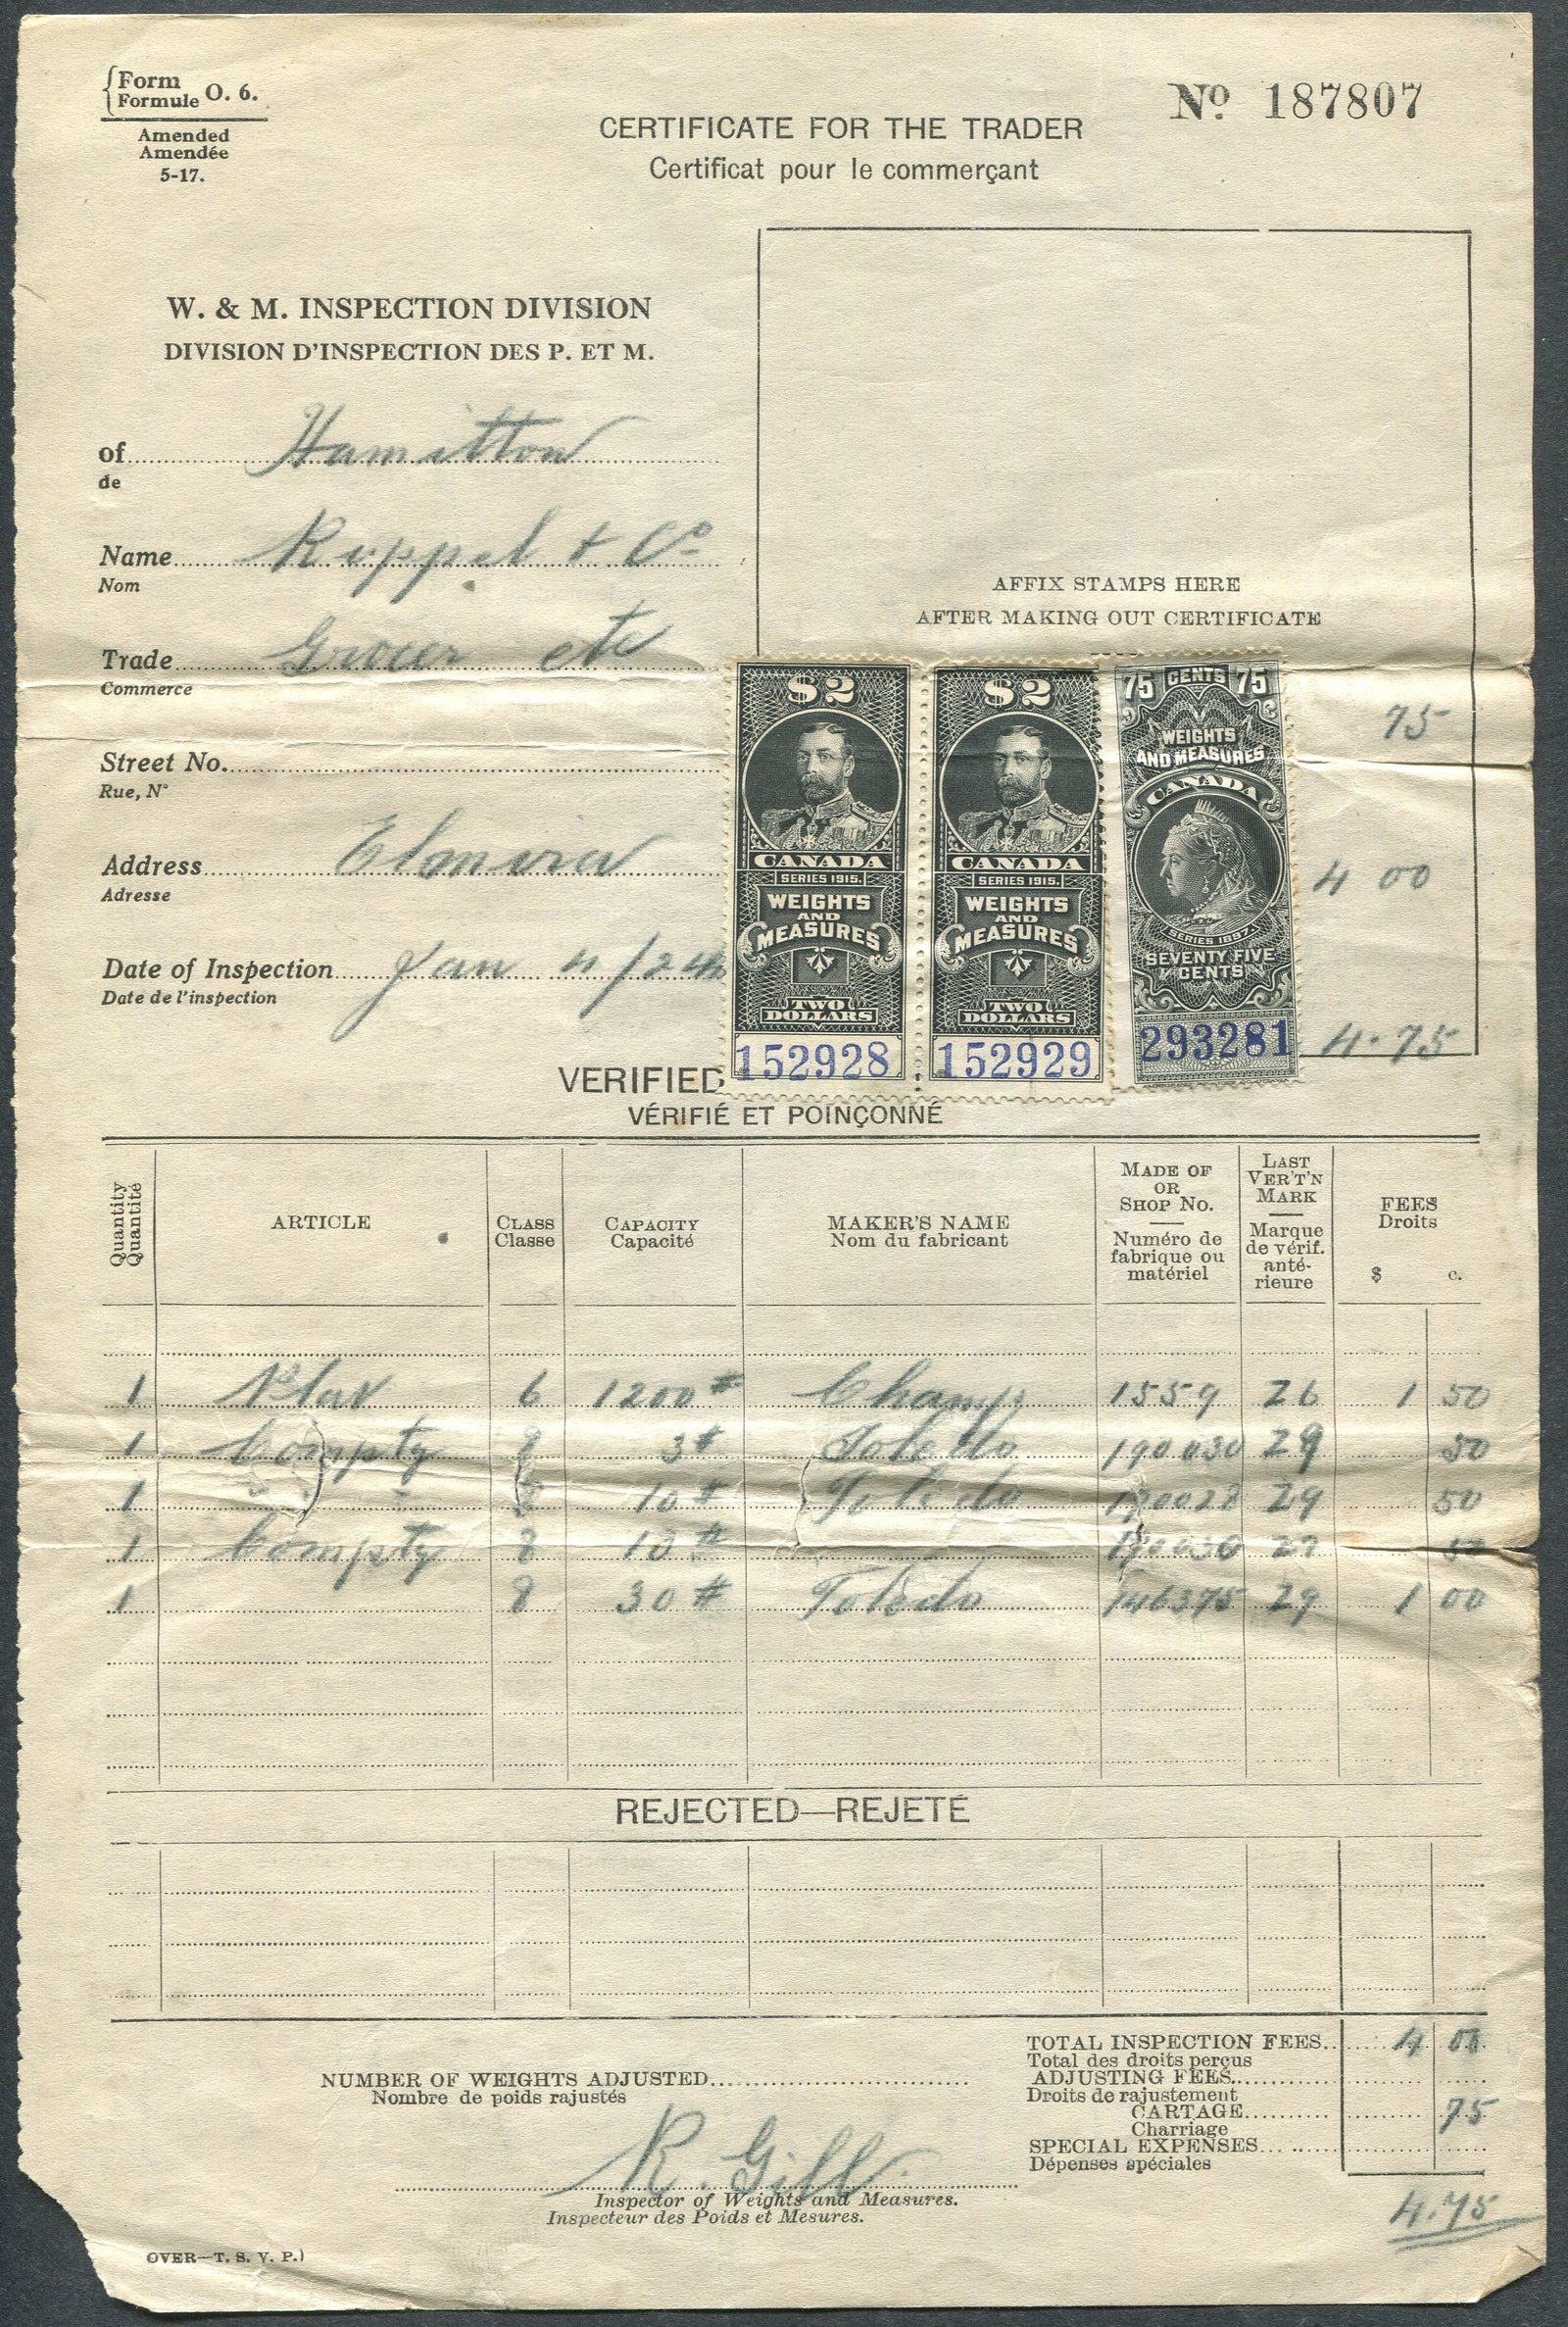 Form
Formule O. 6.
Amended
Amendée
5-17.
Nº 187807
CERTIFICATE FOR THE TRADER
Certificat pour le commerçant
W. & M. INSPECTION DIVISION
DIVISION D'INSPECTION DES P. ET M.
of Hamilton
de
Name Ruppel & Co
Nom
Trade Grocer etc
Commerce
Street No.
Rue, Nº
Address Elmira
Adresse
Date of Inspection Jan 4/24
Date de l'inspection
AFFIX STAMPS HERE
AFTER MAKING OUT CERTIFICATE
$2
CANADA
SERIES 1915.
WEIGHTS
AND
MEASURES
TWO
DOLLARS
152928
$2
CANADA
SERIES 1915.
WEIGHTS
AND
MEASURES
TWO
DOLLARS
152929
75 CENTS 75
WEIGHTS
AND MEASURES
CANADA
SERIES 1897.
SEVENTY FIVE
CENTS
293281
75
4 00
4.75
VERIFIED
VÉRIFIÉ ET POINÇONNÉ
Quantity
Quantité
ARTICLE
CLASS
Classe
CAPACITY
Capacité
MAKER'S NAME
Nom du fabricant
MADE OF
OR
SHOP No.
Numéro de
fabrique ou
matériel
LAST
VER'T'N
MARK
Marque
de vérif.
anté-
rieure
FEES
Droits
$ c.
1 6 1200# Champ 1559 26 1 50
1 Compty 8 3# Toledo 190030 29 50
1 " " 8 10# Toledo 190028 29 50
1 Compty 8 10# 29 50
1 8 30# Toledo 146375 29 1 00
REJECTED—REJETÉ
NUMBER OF WEIGHTS ADJUSTED
Nombre de poids rajustés
TOTAL INSPECTION FEES 4 00
Total des droits perçus
ADJUSTING FEES
Droits de rajustement
CARTAGE 75
Charriage
SPECIAL EXPENSES
Dépenses spéciales
4.75
R. Gill
Inspector of Weights and Measures.
Inspecteur des Poids et Mesures.
OVER—T. S. V. P.)